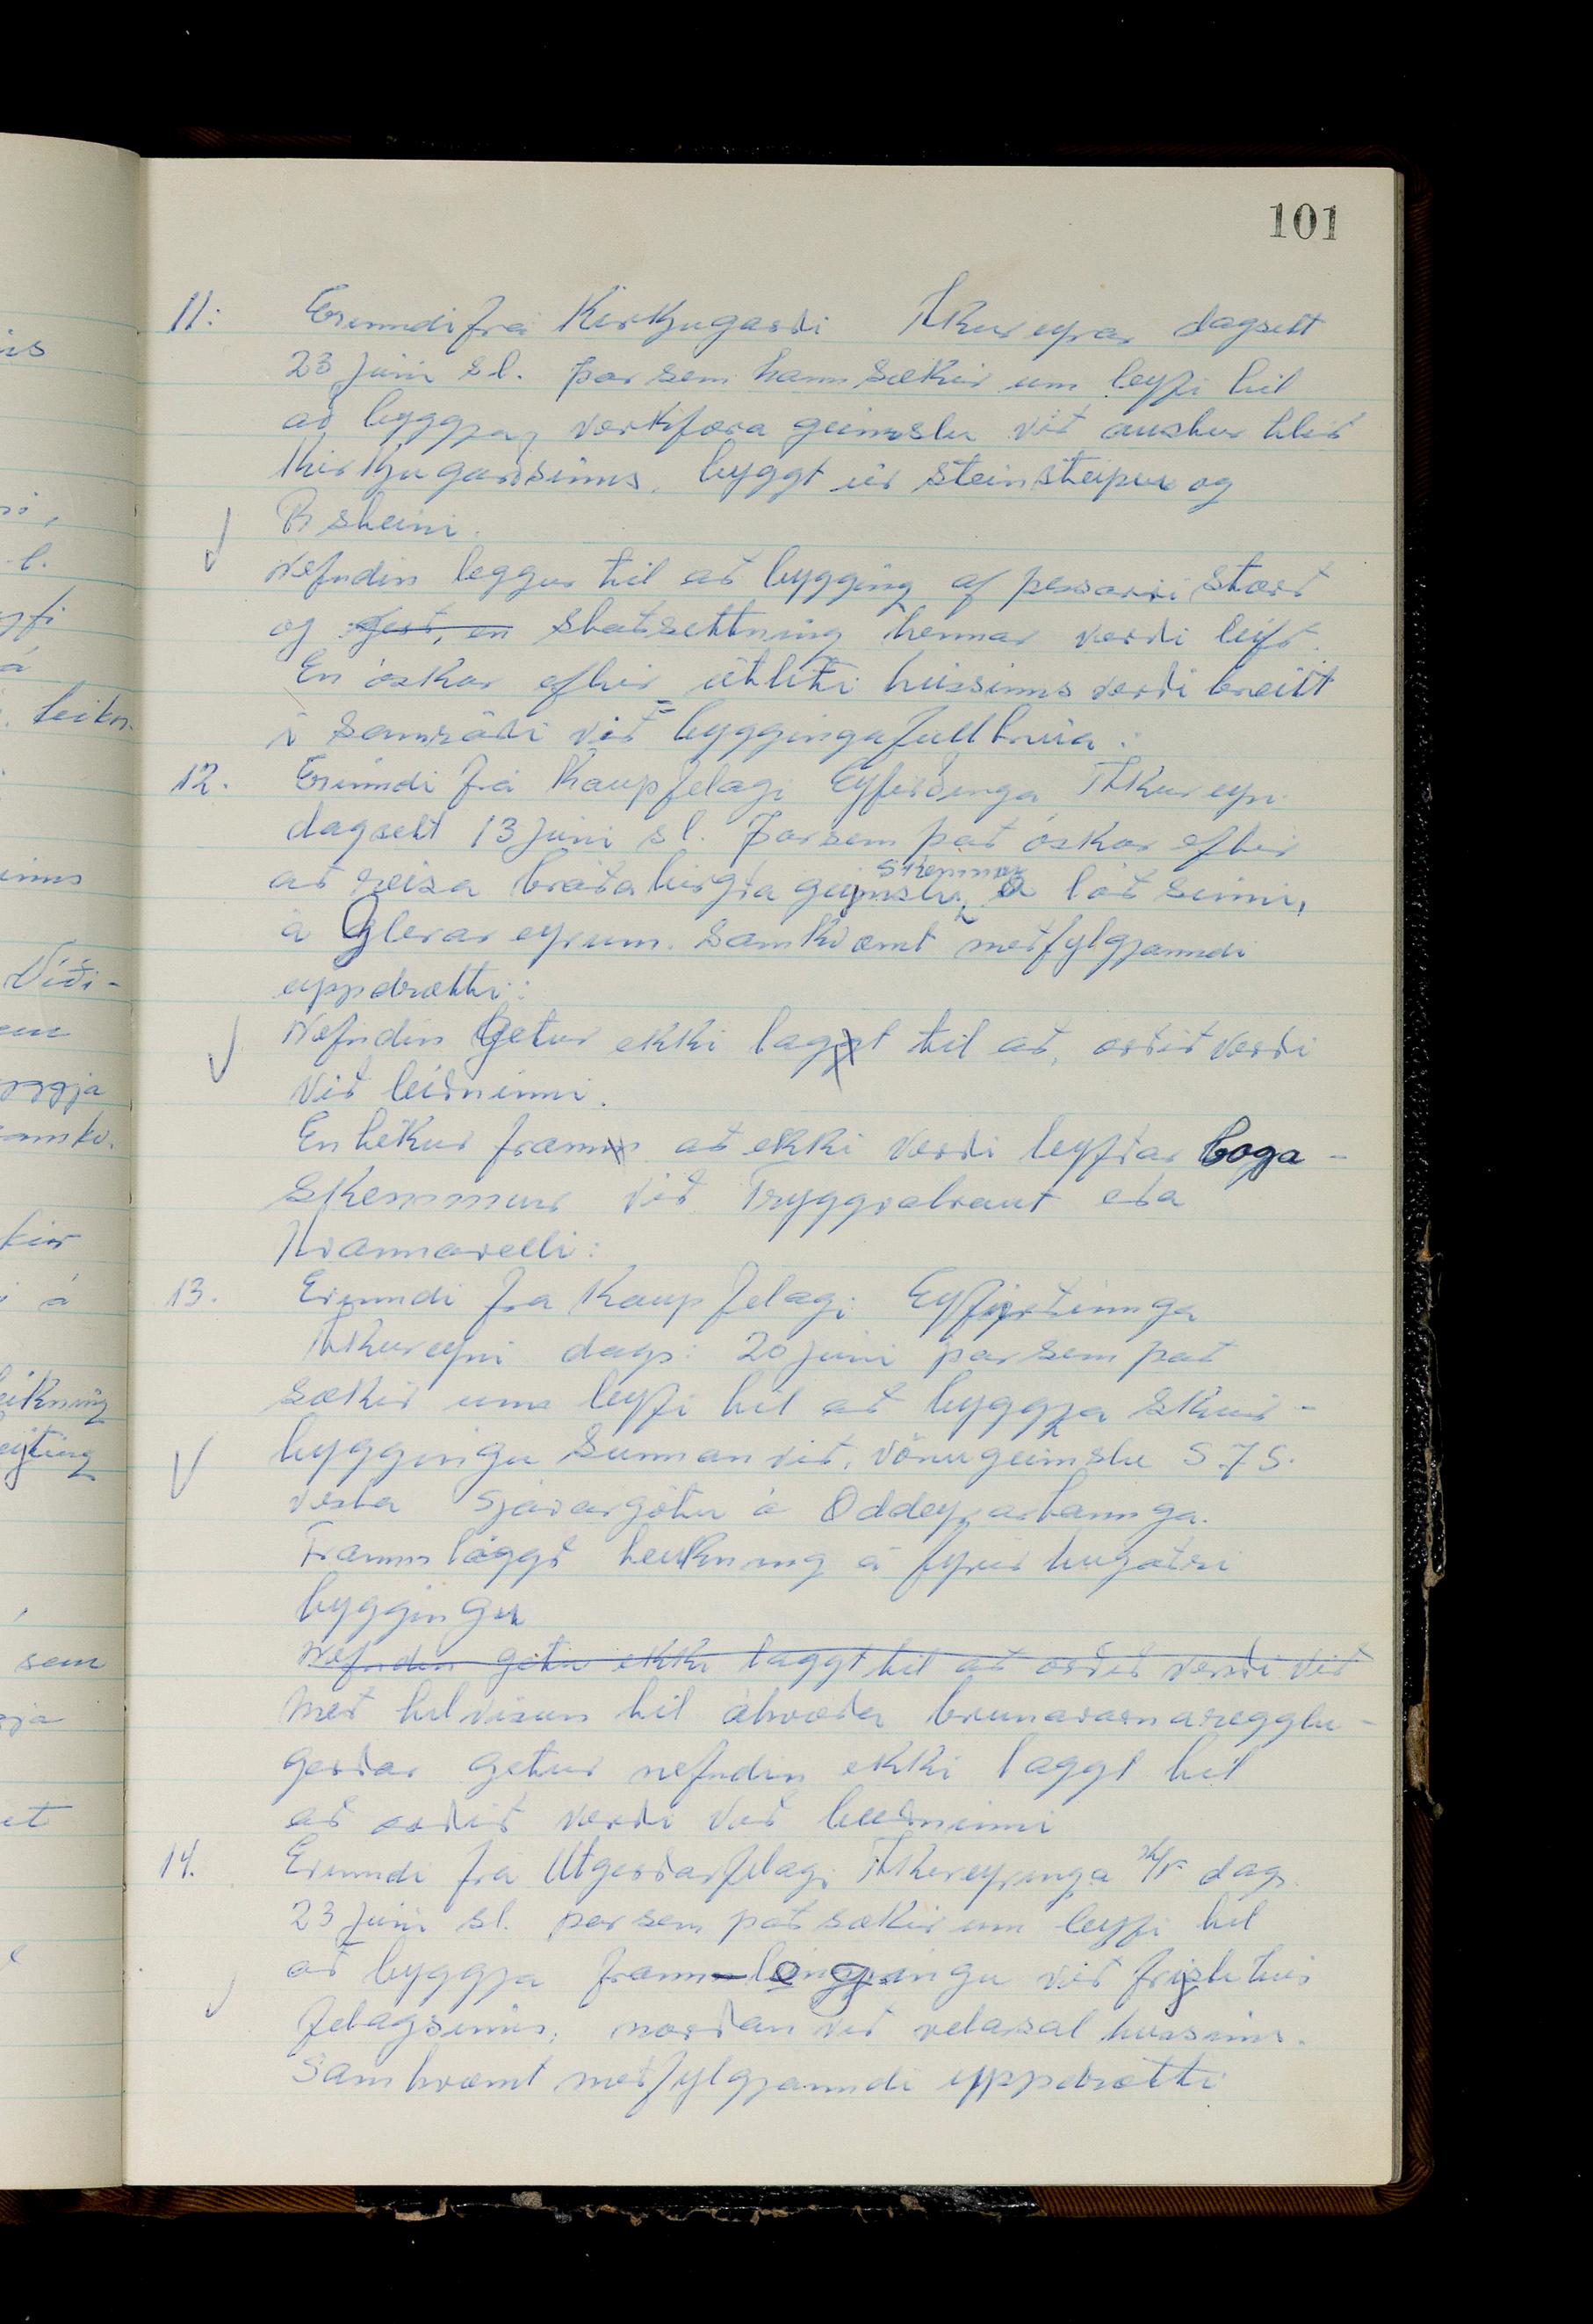 101
11: Erinndi frá Kirkjugarði Akureyrar dagsett
23 Júní s l. þar sem hann sækir um leyfi til
að byggja, verkfæra geimslu við austur hlið
Kirkjugarðsinns, byggt úr steinsteipu og
R steini.
Nefndin leggur til að bygging af þessarri stærð
og gerð, en staðsettning hennar verði leifð.
En óskar eftir útliti hússinns verði breitt
í samráði við byggingafulltrúa.
12. Erinndi frá Kaupfelagi Eyfirðinga Akureyri
dagsett 13 Júní s l. Þar sem það óskar eftir
skemmu
að reisa bráðabirgða geijmslu, á lóð sinni,
á Glerareyrum. Samkvæmt meðfylgjanndi
uppdrætti:
Nefndin Getur ekki lagt til að, orðið verði
við leiðninni.
En tekur fram að ekki verði leyfðar boga-
skemmur við Tryggvabraut eða
Hvannavelli:
13. Erinndi fra Kaupfelagi Eyfirðinnga
Akureyri dags: 20 júní þar sem það
sækir um leyfi til að byggja skúr-
byggingu sunnan við, vörugeimslu S Í S.
vesta Sjávargötu á Oddeyrartannga.
Frammlöggð teikning á fyrirhugaðri
byggingu
Nefndin getu ekki laggt til að orðið verði við
með tilvísun til ákvæða brunavarnaregglu-
gerðar getur nefndin ekki laggt til
að orðið verði við beiðninni
14. Erinndi frá Útgerðarfelagi Akureyringa h/f dags
23 Júní sl. þar sem það sækir um leyfi til
að byggja framm-leingingu við frijstihús
felagsinns, norðan við velasal hússinns.
Samkvæmt meðfylgjanndi uppdrætti